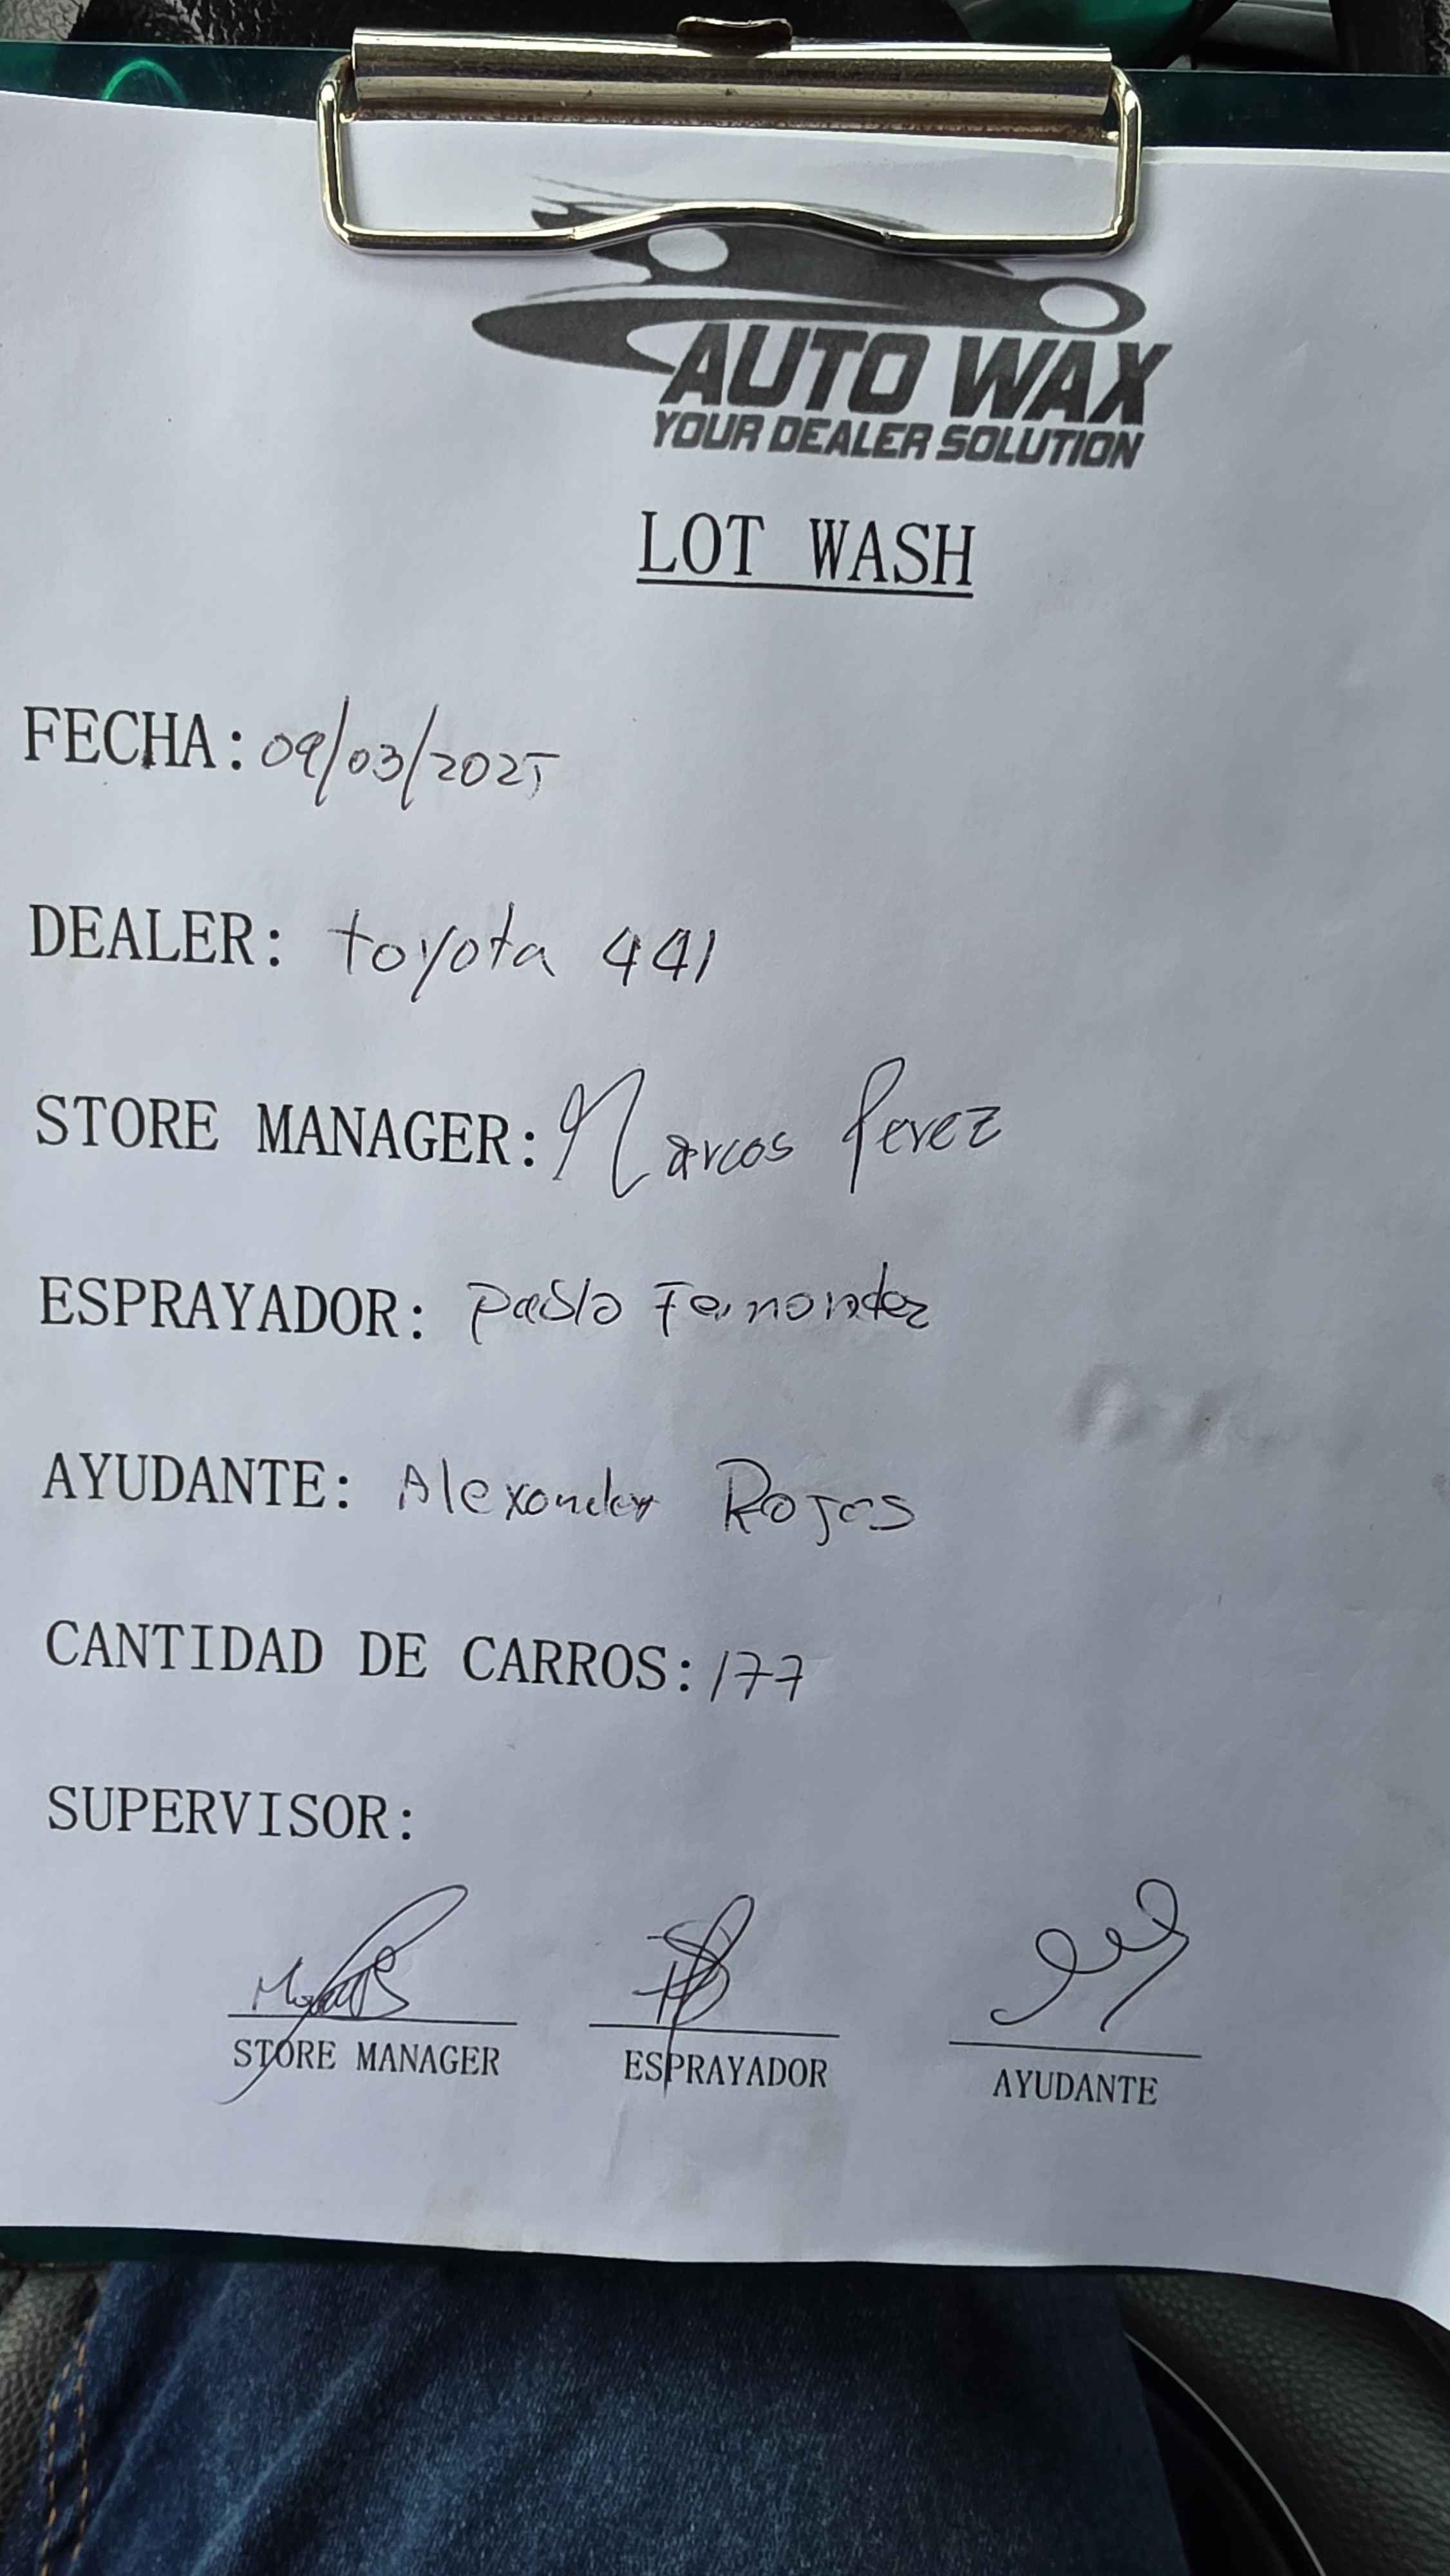 AUTO WAX
YOUR DEALER SOLUTION
LOT WASH
FECHA: 09/03/2025
DEALER: toyota 441
STORE MANAGER: Marcos Perez
ESPRAYADOR: Pablo Fernandez
AYUDANTE: Alexander Rojas
CANTIDAD DE CARROS: 177
SUPERVISOR:
STORE MANAGER ESPRAYADOR AYUDANTE